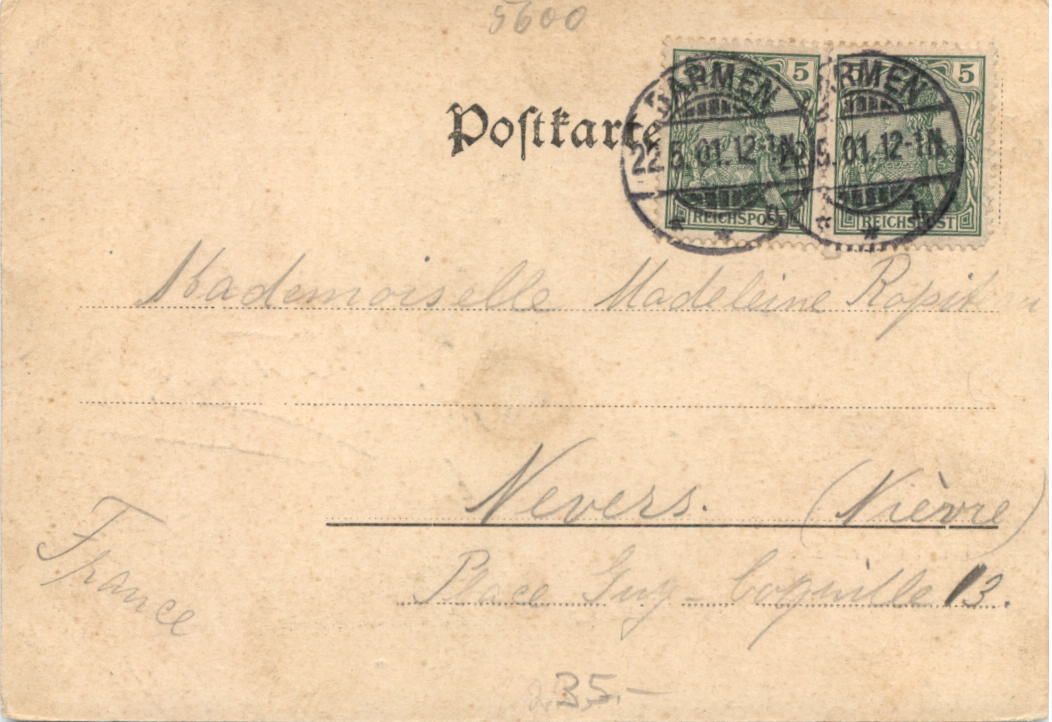 5600
Postkarte
5 5
REICHSPOST REICHSPOST
BARMEN BARMEN
22.5.01.12-1N. 22.5.01.12-1N.
Mademoiselle Madeleine
Nevers. (Nièvre)
France
Place Guy-Coquille 13.
35.-